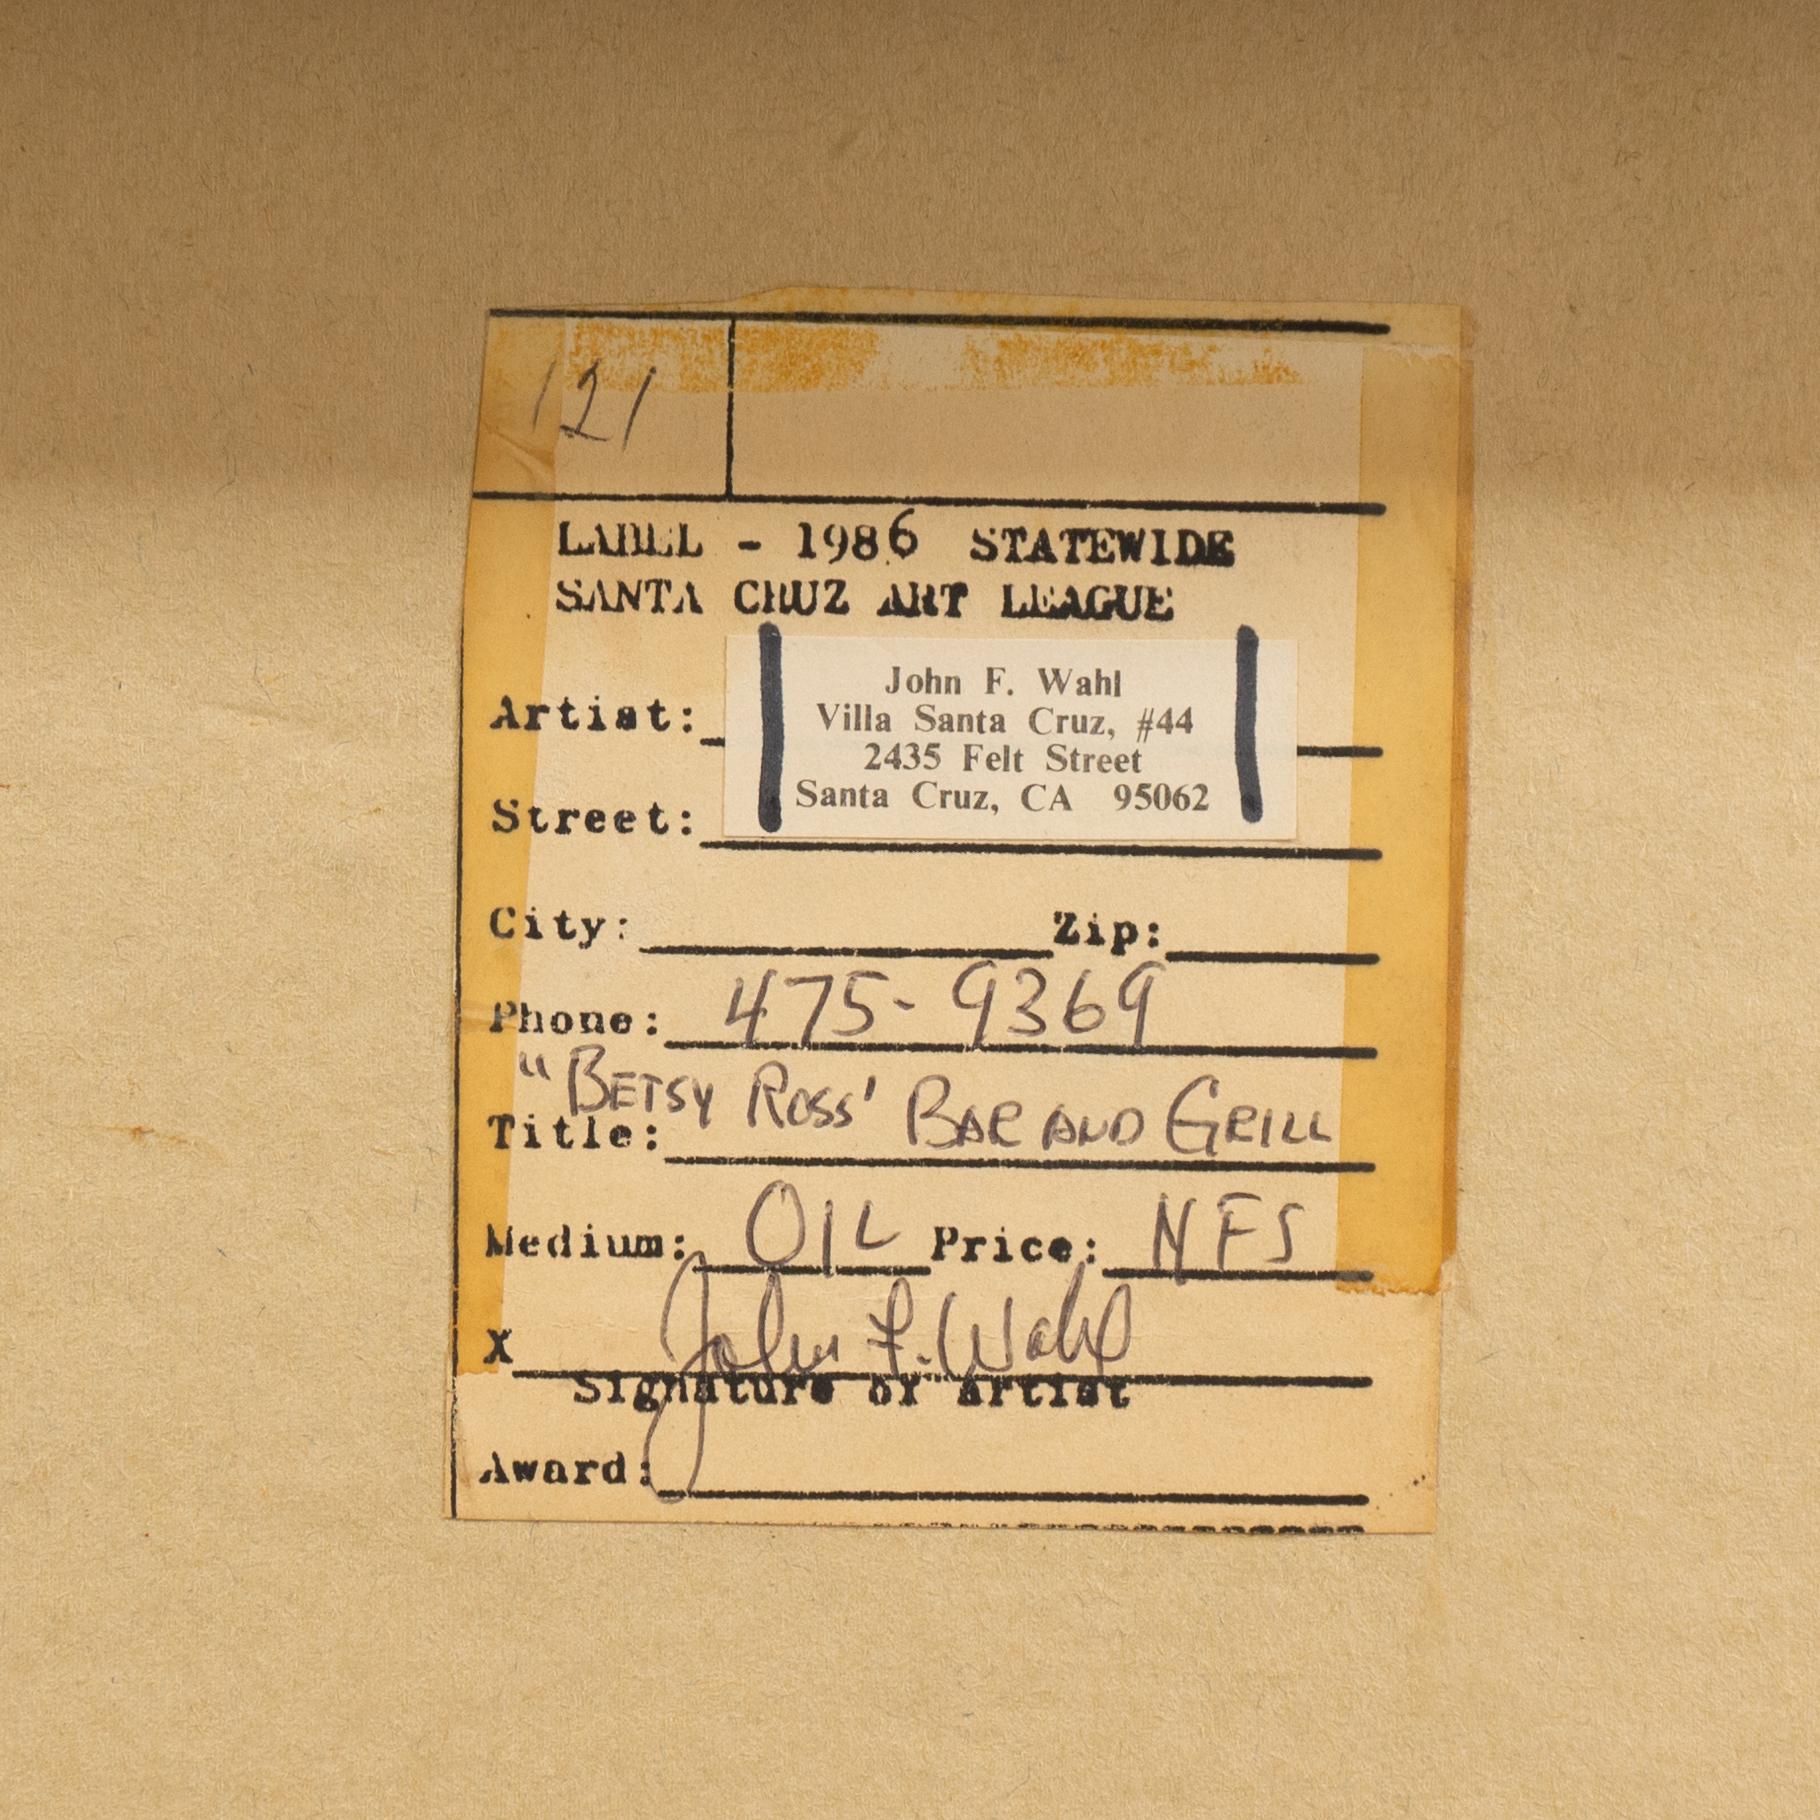 121
LABEL - 1986 STATEWIDE
SANTA CRUZ ART LEAGUE
John F. Wahl
Artist: Villa Santa Cruz, #44
2435 Felt Street
Street: Santa Cruz, CA 95062
City: Zip:
Phone: 475-9369
"BETSY ROSS' BAR AND GRILL
Title:
Medium: OIL Price: NFS
X John F. Wahl
Signature of artist
Award: